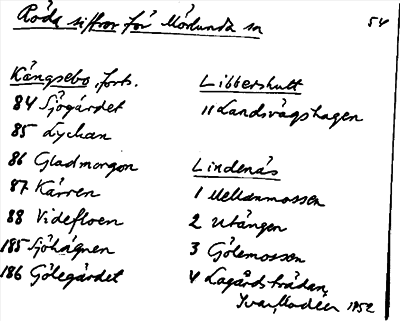 Röda siffror för Mörlunda sn
54
Kängsebo, forts.
84 Sjögärdet
85 Lyckan
86 Gladmorgon
87 Kärren
88 Videfloen
185 Sjöhagnen
186 Gölegärdet
Libbershult
11 Landsvägshagen
Lindenäs
1 Mellanmossen
2 Utängen
3 Gölemossen
4 Lagårdsträdan
Ivar Modéer 1952